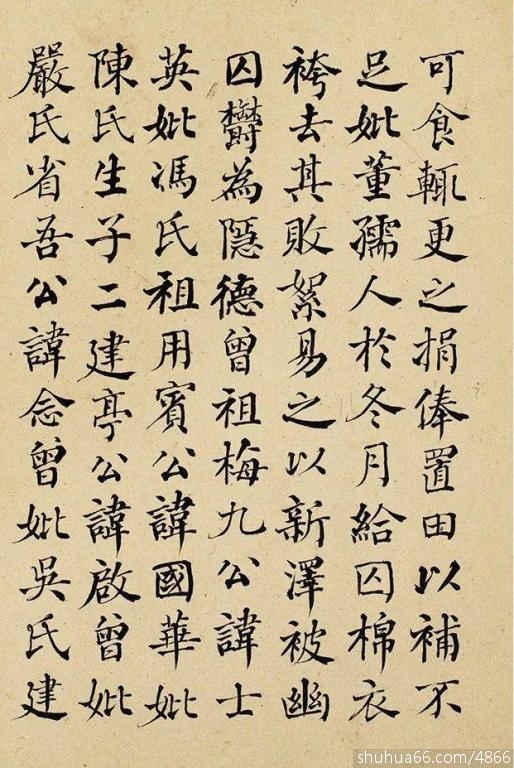 可食輒更之捐俸置田以補不
足妣董孺人於冬月給囚棉衣
袴去其敗絮易之以新澤被幽
囚欝為隱德曾祖梅九公諱士
英妣馮氏祖用賓公諱國華妣
陳氏生子二建亭公諱啟曾妣
嚴氏省吾公諱念曾妣吳氏建
shuhua66.com/4866